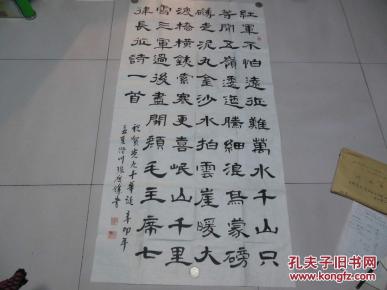 紅軍不怕遠征難萬水千山只
等閒五嶺逶迤騰細浪烏蒙磅
礴走泥丸金沙水拍雲崖暖大
渡橋橫鐵索寒更喜岷山千里
雪三軍過後盡開顏毛主席七
律長征詩一首
九十華誕辛卯年
孟夏
孔夫子旧书网